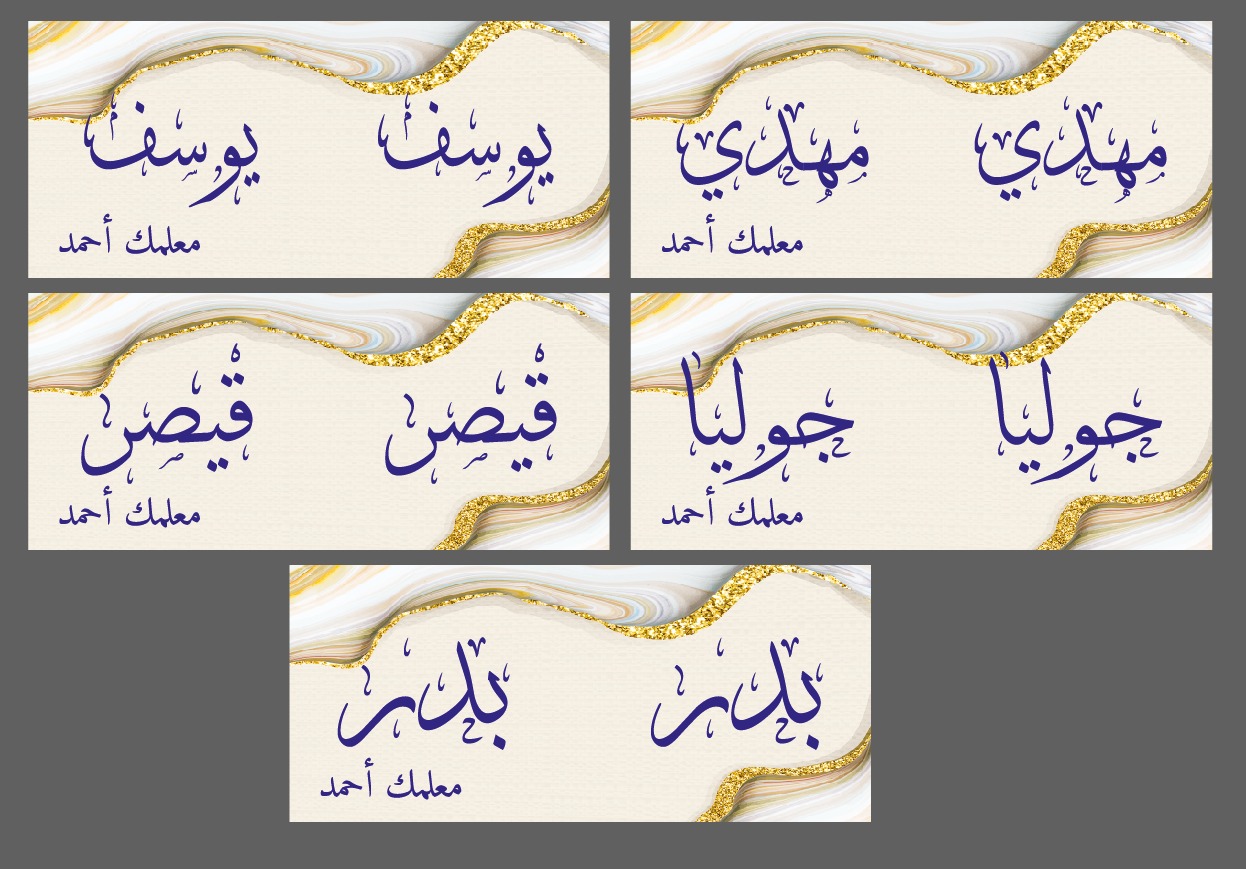 يوسف يوسف
معلمك أحمد
مهدي مهدي
معلمك أحمد
قيصر قيصر
معلمك أحمد
جوليا جوليا
معلمك أحمد
بدر بدر
معلمك أحمد